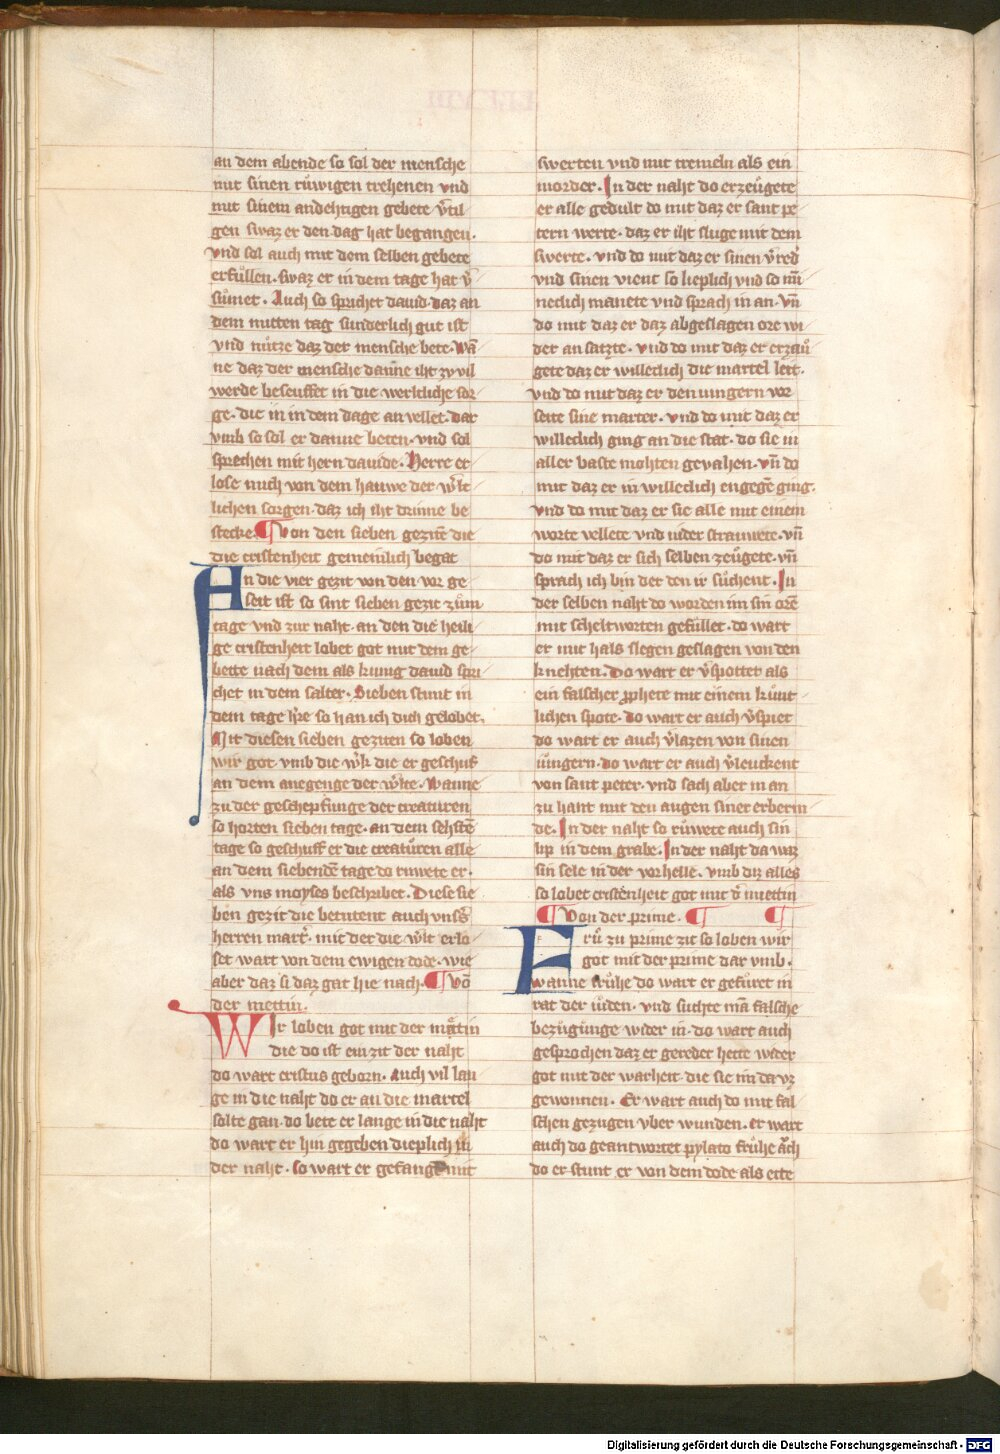 an dem abende so sol der mensche
mit sinen růwigen trehenen vnd
mit sinem andehtigen gebete v̄til
gen swaz er den dag hat begangen.
vnd sol auch mit dem selben gebete
erfůllen. swaz er in dem tage hat v̄
sůmet. Auch so sprichet dauid. daz an
dem mitten tag sunderlich gut ist
vnd nůtze daz der mensche bete. wā
ne daz der mensche danne iht zy vil
werde beseuffet in die werltliche sor
ge. die in in dem dage an vellet. dar
vmb so sol er danne beten. vnd sol
sprechen mit hern dauide. Herre er
lose mich von dem hauwe der w̄lt
lichen sorgen. daz ich iht drinne be
stecke. ¶ Von den sieben gezitē die
die cristenheit gemeinlich begat
An die vier gezit von den vor ge
seit ist so sint sieben gezit zům
tage vnd zur naht. an den die heili
ge cristenheit lobet got mit dem ge
bette nach dem als kunig dauid spri
chet in dem salter. Sieben stunt in
dem tage h̄re so han ich dich gelobet.
Mit diesen sieben geziten so loben
wir got vmb die w̄k die er geschuf
an dem anegenge der w̄lte. Wanne
zu der geschepfunge der creaturen
so horten sieben tage. an dem sehstē
tage so geschuff er die creatůren alle
an dem siebendē tage do ruwete er.
als vns moyses beschribet. Diese sie
ben gezit die betutent auch vnss̄
herren mart̄. mit der die w̄lt erlo
set wart von dem ewigen dode. wie
aber daz si daz gat hie nach. ¶ Vō
der mettin.
Wir loben got mit der mättin
die do ist ein zit der naht
do wart cristus geborn. Auch vil lan
ge in die naht do er an die martel
solte gan. do bete er lange in die naht
do wart er hin gegeben dieplich in
der naht. so wart er gefangē mit
swerten vnd mit tremeln als ein
morder. In der naht do erzeůgete
er alle gedult do mit daz er sant pe
tern werte. daz er iht sluge mit dem
swerte. vnd do mit daz er sinen v̄red̄
vnd sinen vient so lieplich vnd so mī
neclich manete vnd sprach in an. vn̄
do mit daz er daz abgeslagen ore wi
der an satzte. vnd do mit daz er erzaů
gete daz er willeclich die martel leit.
vnd do mit daz er den iungern vor
seite sine marter. vnd do mit daz er
willeclich ging an die stat. do sie in
aller baste mohten gevahen. vn̄ do
mit daz er in willeclich engegē ging.
vnd do mit daz er sie alle mit einem
worte vellete vnd nider strauwete. vn̄
do mit daz er sich selben zeůgete. vn̄
sprach ich bin der den ir sůchent. In
der selben naht do worden im sin orē
mit scheltworten gefůllet. do wart
er mit hals slegen geslagen von den
knehten. Do wart er v̄spottet als
ein falscher prophete mit einem kůnt
lichen spote. do wart er auch v̄spiet
do wart er auch v̄lazen von sinen
iůngern. do wart er auch v̄leuckent
von sant peter. vnd sach aber in an
zu hant mit den augen siner erberm
de. In der naht so růwete auch sin
lip in dem grabe. In der naht da waz
sin sele in der vorhelle. vmb diz alles
so lobet cristenheit got mit d̄ mettin
¶ Von der prime. ¶ ¶
Frů zu prime zit so loben wir
got mit der prime dar vmb.
wanne frůhe do wart er gefůret in
rat der iůden. vnd suchte mā falsche
bezůgůnge wider in. do wart auch
gesprochen daz er geredet hette wider
got mit der warheit. die sie
gewonnen. Er wart auch do mit fal
schen gezugen vber wunden. er wart
auch do geantwortet pylato frůhe
do er stunt er von dem dode als